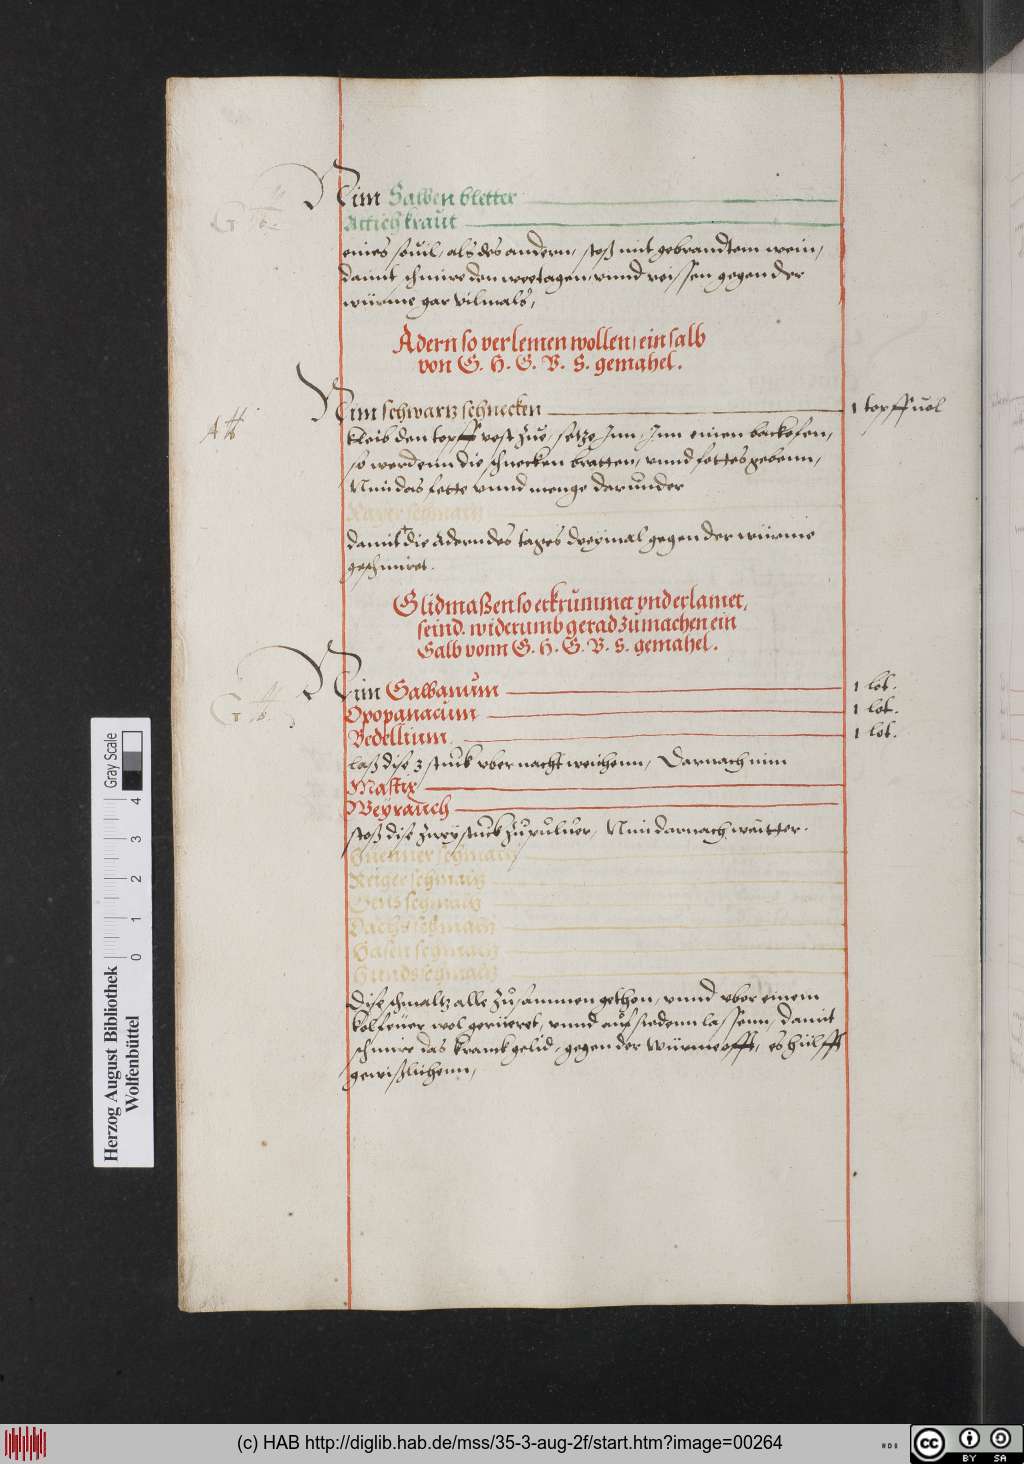 Nim Salben bletter
Attich kraut
eines souil, als des andern, stoß mit gebrandtem wein,
damit schmire den weetagen, vnnd reissen gegen der
würme gar vilmals,
Adern so verlemen wollen, ein salb
von G. H. G. V. S. gemahel.
Nim schwartz schnecken 1 topff uol
kleib den topff vest zue, setze Inn, Inn einen backofen,
so werdenn die schnecken bratten, vnnd fettes gebenn,
Nim das fette vnnd menge darunder
schmaltz
damit die Adern des tages dreymal gegen der würme
geschmiret.
Glidmaßen so erkrummet vnd erlamet,
seind. widerumb gerad zu machen ein
Salb vonn G. H. G. V. S. gemahel.
Nim Galbanum 1 lot.
Opopanacum 1 lot.
Bedellium 1 lot.
laß dise 3 stuck vber nacht weichenn, Darnach nim
Mastix
Weyrauch
stoß dise zwey stuck zu puluer, Nim darnach weitter.
Huenner schmaltz
Reiger schmaltz
Gens schmaltz
Dachs schmaltz
Hasen schmaltz
Hunds schmaltz
Dise schmaltz alle zusammen gethon, vnnd vber einem
kolfeüer wol gerüeret, vnnd auf siedenn lassenn, damit
schmire das kranck gelid, gegen der würme offt, es hülfft
gewißlichenn,
Herzog August Bibliothek
Wolfenbüttel
Gray Scale
0 1 2 3 4
(c) HAB http://diglib.hab.de/mss/35-3-aug-2f/start.htm?image=00264
cc BY SA